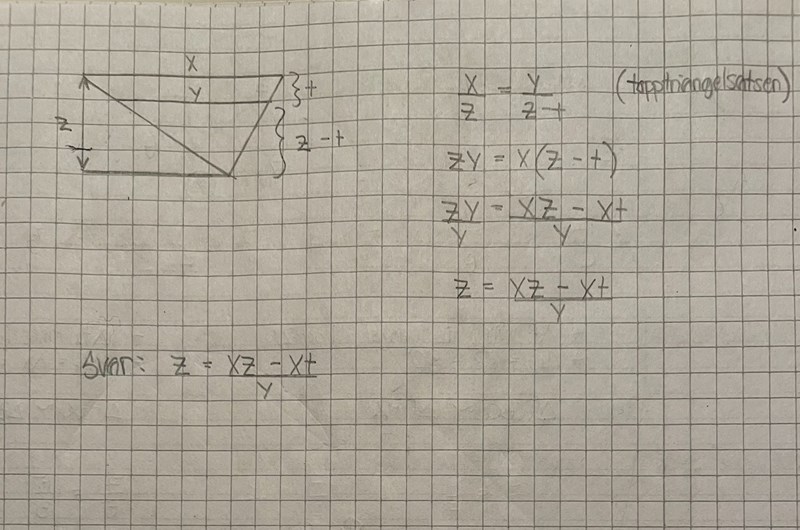 X
Y
t
Z
Z - t
X/Z = Y/(Z - t) (topptriangelsatsen)
ZY = X(Z - t)
ZY/Y = (XZ - Xt)/Y
Z = (XZ - Xt)/Y
Svar: Z = (XZ - Xt)/Y